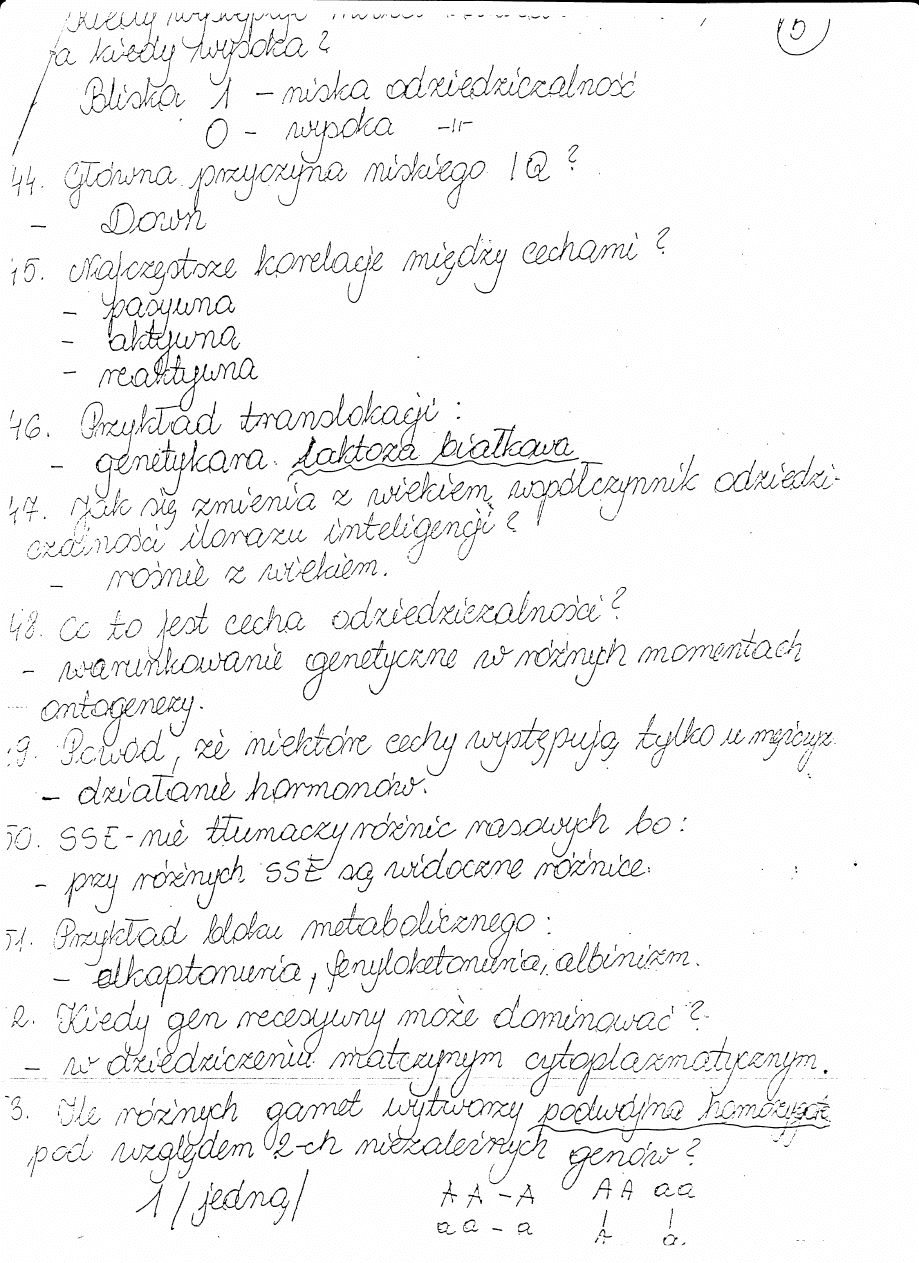 5
Kiedy występuje
a kiedy wysoka?
Bliska 1 - niska odziedziczalność
0 - wysoka -11-
44. Główna przyczyna niskiego IQ?
- Down
15. Najczęstsze korelacje między cechami?
- pasywna
- aktywna
- reaktywna
46. Przykład translokacji:
- genetykara. laktoza białkowa
47. Jak się zmienia z wiekiem współczynnik odziedzi-
czalności ilorazu inteligencji?
- rośnie z wiekiem.
48. Co to jest cecha odziedziczalności?
- warunkowanie genetyczne w różnych momentach
ontogenezy.
9. Powód, że niektóre cechy występują tylko u mężczyz
- działanie hormonów.
50. SSE - nie tłumaczy różnic rasowych bo:
- przy różnych SSE są widoczne różnice.
51. Przykład bloku metabolicznego:
- alkaptonuria, fenyloketonuria, albinizm.
2. Kiedy gen recesywny może dominować?
- w dziedziczeniu matczynym cytoplazmatycznym.
3. Ile różnych gamet wytwarzy podwójna homozygota
pod względem 2-ch niezależnych genów?
1 /jedną/ AA - A AA aa
aa - a A a.